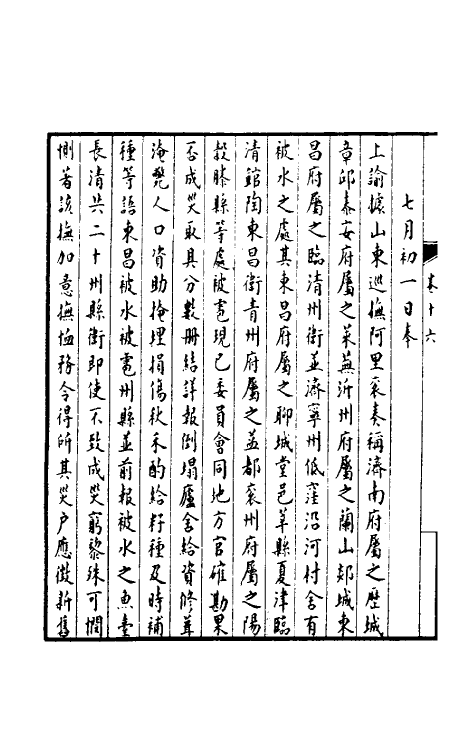 七月初一日奉
上諭據山東巡撫阿里衮奏稱濟南府屬之歷城
章邱泰安府屬之萊蕪沂州府屬之蘭山郯城東
昌府屬之臨清州衛並濟寧州低窪沿河村舍有
被水之處其東昌府屬之聊城堂邑莘縣夏津臨
清館陶東昌衛青州府屬之益都兗州府屬之陽
穀滕縣等處被雹現已委員會同地方官確勘果
否成災取具分數冊結詳報倒塌廬舍給資修葺
淹斃人口資助掩埋損傷秋禾酌給籽種及時補
種等語東昌被水被雹州縣並前報被水之魚臺
長清共二十州縣衛即使不致成災窮黎殊可憫
惻著該撫加意撫恤務令得所其災戶應徵新舊
卷十六